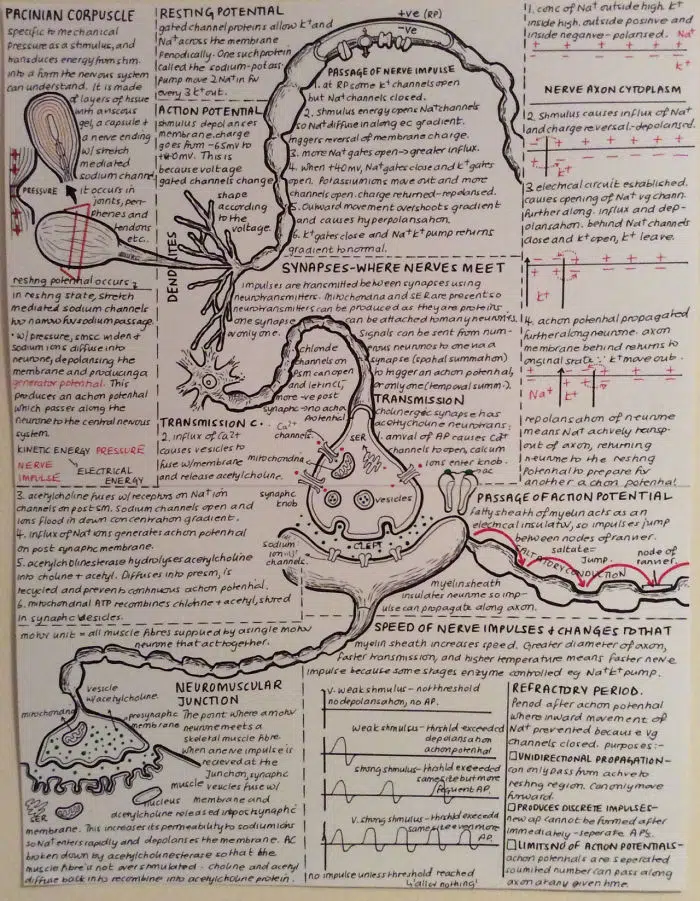 PACINIAN CORPUSCLE
specific to mechanical
pressure as a stimulus, and
transduces energy from stim.
into a form the nervous system
can understand. It is made
of layers of tissue
with a viscous
gel, a capsule +
a nerve ending
w/ stretch
mediated
sodium channels
PRESSURE
it occurs in
joints, peri-
phenes and
tendons
etc.
resting potential occurs
in resting state, stretch
mediated sodium channels
too narrow for sodium passage.
• w/ pressure, smsc widen &
sodium ions diffuse into
neurone, depolarising the
membrane and producing a
generator potential. This
produces an action potential
which passes along the
neurone to the central nervous
system.
KINETIC ENERGY PRESSURE
NERVE
IMPULSE
ELECTRICAL
ENERGY
RESTING POTENTIAL
gated channel proteins allow K+ and
Na+ across the membrane
periodically. One such protein
called the sodium-potass.
pump move 2 Na+ in for
every 3 K+ out.
ACTION POTENTIAL
stimulus depolarises
membrane. charge
goes from -65mv to
+40mv. This is
because voltage
gated channels change
shape
according
to the
voltage.
DENDRITES
+ve (RP)
-ve
PASSAGE OF NERVE IMPULSE
1. at RP some K+ channels open
but Na+ channels closed.
2. stimulus energy opens Na+ channels
so Na+ diffuse in along ec gradient.
triggers reversal of membrane charge.
3. more Na+ gates open → greater influx.
4. when +40mv, Na+ gates close and K+ gates
open. Potassium ions move out and more
channels open. charge restored - repolarised.
5. Outward movement overshoots gradient
and causes hyperpolarisation.
6. K+ gates close and Na+K+ pump returns
gradient to normal.
1. conc of Na+ outside high. K+
inside high. outside positive and
inside negative - polarised. Na+
K+
NERVE AXON CYTOPLASM
2. Stimulus causes influx of Na+
and charge reversal - depolarised.
3. electrical circuit established.
causes opening of Na+ vg chann.
further along. influx and dep-
olarisation. behind Na+ channels
close and K+ open, K+ leave.
K+
4. action potential propagated
further along neurone. axon
membrane behind returns to
original state ∵ K+ move out.
Na+ K+
repolarisation of neurone
means Na+ actively transp.
out of axon, returning
neurone to the resting
potential to prepare for
another action potential
SYNAPSES - WHERE NERVES MEET
impulses are transmitted between synapses using
neurotransmitters. Mitochondria and sER are present so
neurotransmitters can be produced as they are proteins.
one synapse can be attached to many neurones,
or only one. Signals can be sent from num-
erous neurones to one via a
synapse (spatial summation)
to trigger an action potential,
or only one (temporal summ.).
chloride
channels on
psm can open
and let in Cl,
more -ve post
synaptic → no action
potential
TRANSMISSION
cholinergic synapse has
acetylcholine neurotrans.
1. arrival of AP causes Ca2+
channels to open, calcium
ions enter knob.
TRANSMISSION C.
2. influx of Ca2+
causes vesicles to
fuse w/ membrane
and release acetylcholine.
Ca2+
channels
mitochondria
SER
synaptic
knob
vesicles
CLEFT
sodium
ion
channels
3. acetylcholine fuses w/ receptors on Na+ ion
channels on postsm. Sodium channels open and
ions flood in down concentration gradient.
4. influx of Na+ ions generates action potential
on post synaptic membrane.
5. acetylcholinesterase hydrolyses acetylcholine
into choline + acetyl. Diffuses into presm, is
recycled and prevents continuous action potential.
6. mitochondrial ATP recombines choline + acetyl, stored
in synaptic vesicles.
motor unit = all muscle fibres supplied by a single motor
neurone that act together.
PASSAGE OF ACTION POTENTIAL
fatty sheath of myelin acts as an
electrical insulator, so impulses jump
between nodes of ranvier.
saltate =
jump.
node of
ranvier.
SALTATORY CONDUCTION
myelin sheath
insulates neurone so imp-
ulse can propagate along axon.
SPEED OF NERVE IMPULSES & CHANGES TO THAT
myelin sheath increases speed. Greater diameter of axon,
faster transmission, and higher temperature means faster nerve
impulse because some stages enzyme controlled eg Na+K+ pump.
NEUROMUSCULAR
JUNCTION
vesicle
w/ acetylcholine.
mitochondria
presynaptic
membrane
The point where a motor
neurone meets a
skeletal muscle fibre.
When a nerve impulse is
recieved at the
junction, synaptic
vesicles fuse w/
membrane and
acetylcholine released into postsynaptic
membrane. This increases its permeability to sodium ions
so Na+ enters rapidly and depolarises the membrane. AC
broken down by acetylcholinesterase so that the
muscle fibre is not overstimulated - choline and acetyl
diffuse back into recombine into acetylcholine protein.
muscle
nucleus
SER
v. weak stimulus - no threshold
no depolarisation, no AP.
Weak stimulus - thrshld exceeded
depolarisation
action potential
strong stimulus - thrshld exceeded
same size but more
frequent AP.
v. strong stimulus - thrshld exceeded
same size even more
AP.
no impulse unless threshold reached
↳ 'all or nothing'
REFRACTORY PERIOD.
Period after action potential
where inward movement of
Na+ prevented because vg
channels closed. purposes:-
UNIDIRECTIONAL PROPAGATION -
can only pass from active to
resting region. Can only move
forward.
PRODUCES DISCRETE IMPULSES -
new ap cannot be formed after
immediately - seperate APs.
LIMITS NO OF ACTION POTENTIALS -
action potentials are seperated
so limited number can pass along
axon at any given time.